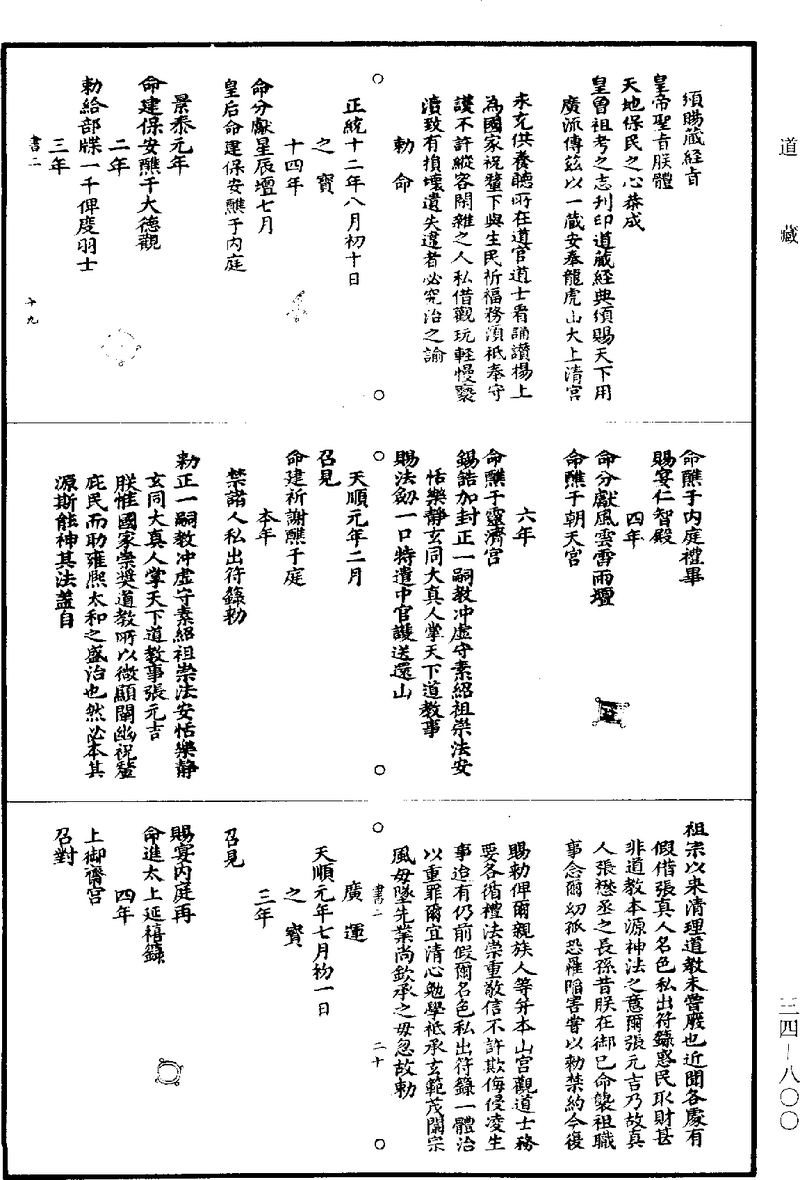 道藏
頒賜藏經旨
皇帝聖旨朕體
天地保民之心恭成
皇曾祖考之志刊印道藏經典頒賜天下用
廣流傳茲以一藏安奉龍虎山大上清宮
永充供養聽所在道官道士看誦讚揚上
為國家祝釐下與生民祈福務須祗奉守
護不許縱容閑雜之人私借觀玩輕慢褻
瀆致有損壞遺失違者必究治之諭
勅命
正統十二年八月初十日
之寶
十四年
命分獻星辰壇七月
皇后命建保安醮于內庭
景泰元年
命建保安醮于大德觀
二年
勅給部牒一千俾度羽士
三年
書二
十九
命醮于內庭禮畢
賜宴仁智殿
四年
命分獻風雲雷雨壇
命醮于朝天宮
六年
命醮于靈濟宮
錫誥加封正一嗣教冲虛守素紹祖崇法安
恬樂靜玄同大真人掌天下道教事
賜法劔一口特遣中官護送還山
天順元年二月
召見
命建祈謝醮于庭
本年
禁諸人私出符籙勅
勅正一嗣教冲虛守素紹祖崇法安恬樂靜
玄同大真人掌天下道教事張元吉
朕惟國家崇獎道教所以微顯闡幽祝釐
庇民而助雍熙太和之盛治也然必本其
源斯能神其法蓋自
祖宗以來清理道教未嘗廢也近聞各處有
假借張真人名色私出符籙惑民取財甚
非道教本源神法之意爾張元吉乃故真
人張懋丞之長孫昔朕在御已命襲祖職
事念爾幼孤恐罹陷害嘗以勅禁約今復
賜勅俾爾親族人等并本山宮觀道士務
要各循禮法崇重敬信不許欺侮侵凌生
事迨有仍前假爾名色私出符籙一體治
以重罪爾宜清心勉學祗承玄範茂闡宗
風毋墜先業尚欽承之毋忽故勅
書二
二十
廣運
天順元年七月初一日
之寶
三年
召見
賜宴內庭再
命進太上延禧籙
四年
上御齋宮
召對
三四—八〇〇